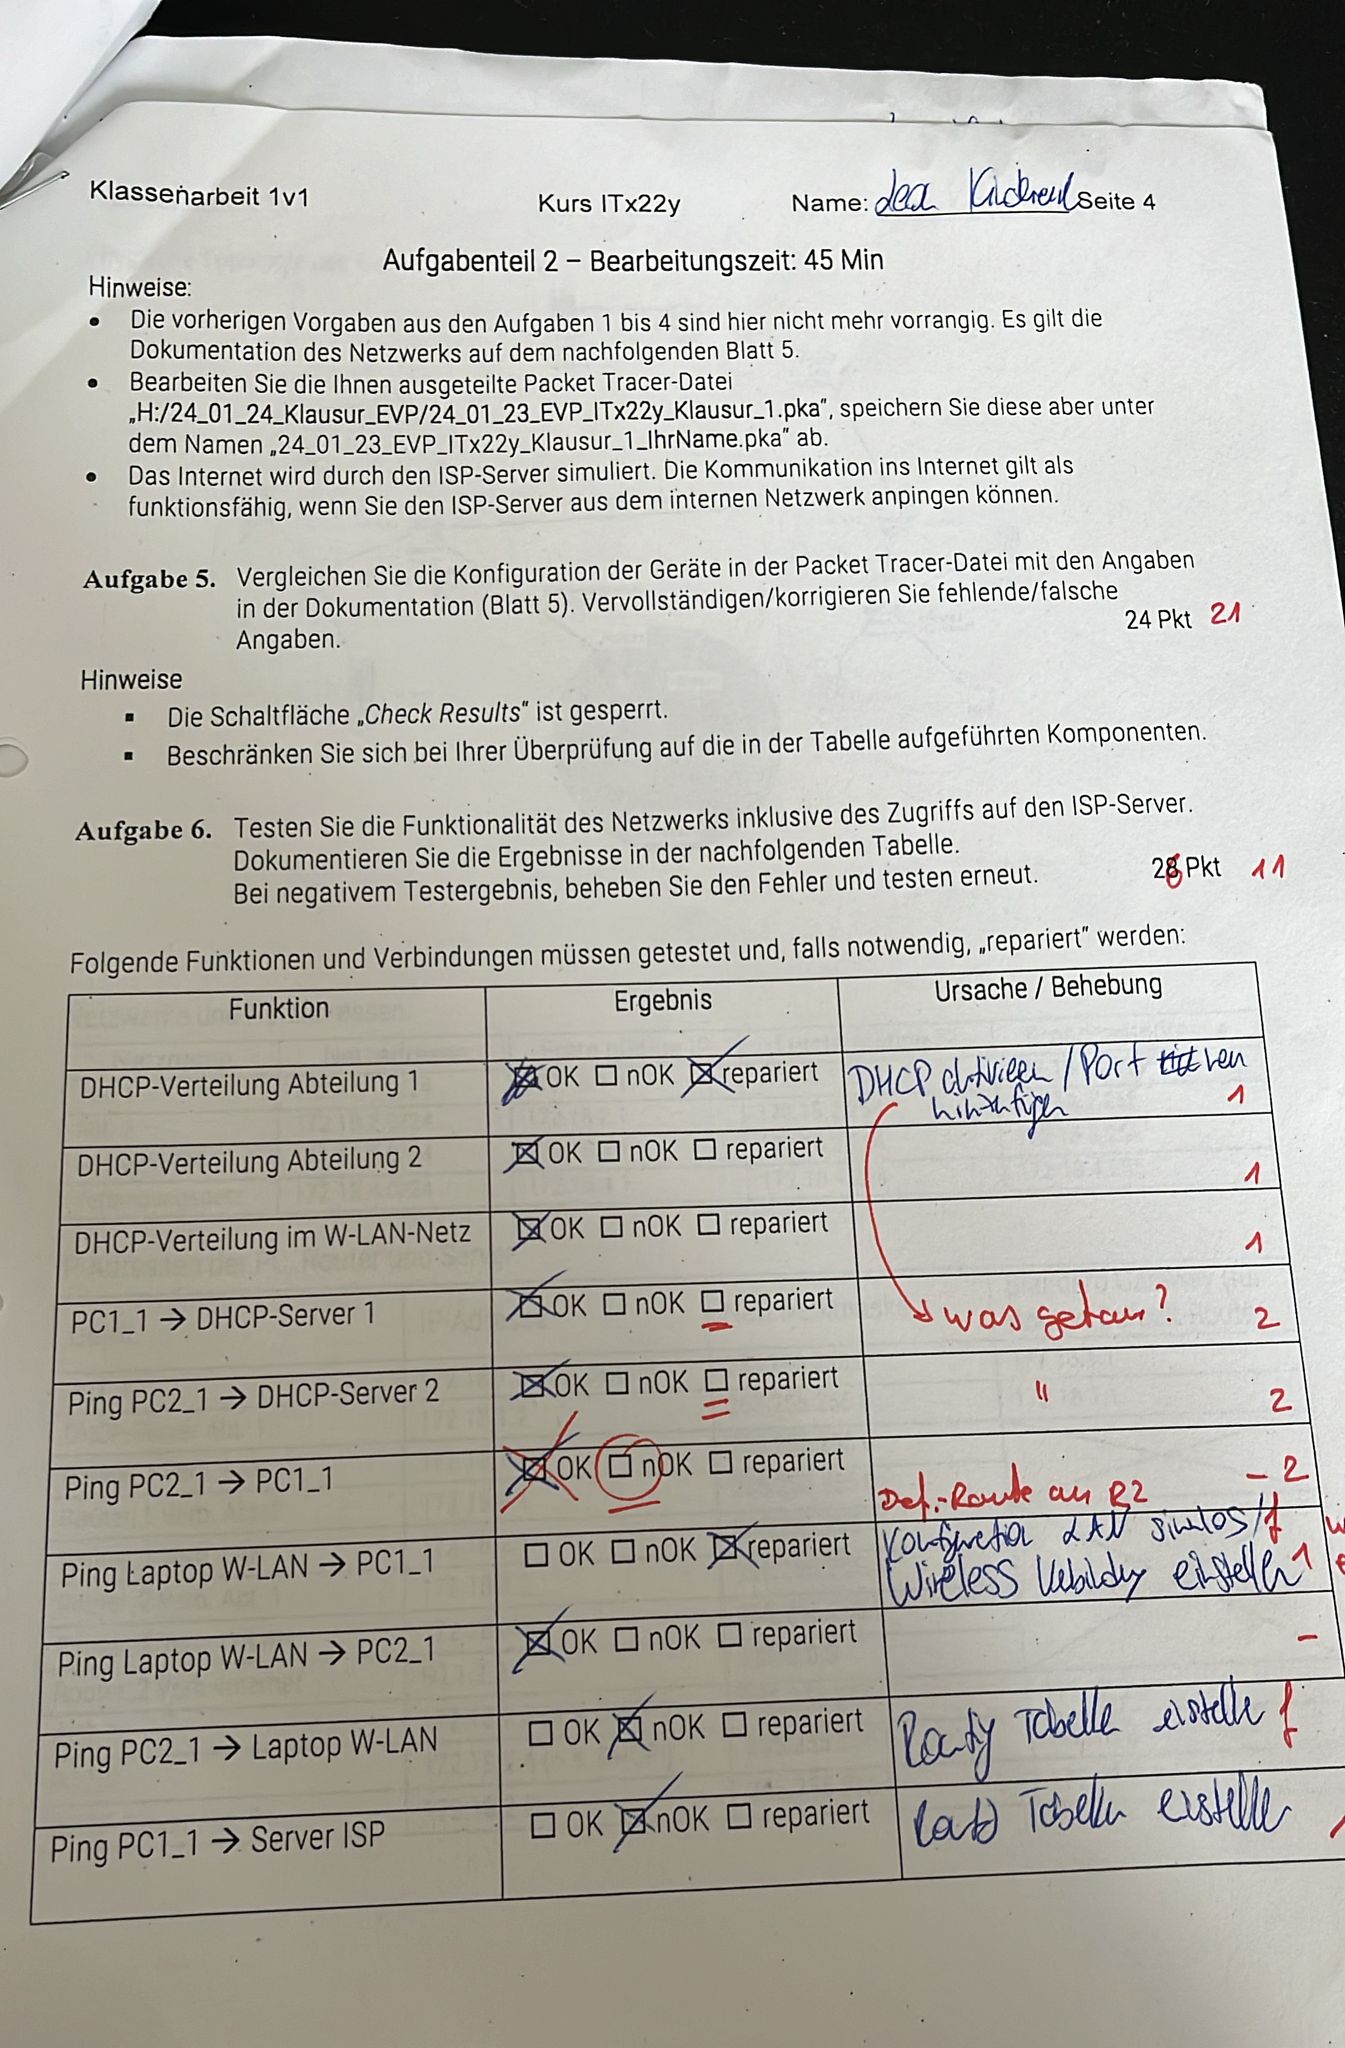 Klassenarbeit 1v1 Kurs ITx22y Name: Lea Seite 4
Aufgabenteil 2 – Bearbeitungszeit: 45 Min
Hinweise:
• Die vorherigen Vorgaben aus den Aufgaben 1 bis 4 sind hier nicht mehr vorrangig. Es gilt die
Dokumentation des Netzwerks auf dem nachfolgenden Blatt 5.
• Bearbeiten Sie die Ihnen ausgeteilte Packet Tracer-Datei
„H:/24_01_24_Klausur_EVP/24_01_23_EVP_ITx22y_Klausur_1.pka", speichern Sie diese aber unter
dem Namen „24_01_23_EVP_ITx22y_Klausur_1_IhrName.pka" ab.
• Das Internet wird durch den ISP-Server simuliert. Die Kommunikation ins Internet gilt als
funktionsfähig, wenn Sie den ISP-Server aus dem internen Netzwerk anpingen können.
Aufgabe 5. Vergleichen Sie die Konfiguration der Geräte in der Packet Tracer-Datei mit den Angaben
in der Dokumentation (Blatt 5). Vervollständigen/korrigieren Sie fehlende/falsche
Angaben. 24 Pkt 21
Hinweise
▪ Die Schaltfläche „Check Results" ist gesperrt.
▪ Beschränken Sie sich bei Ihrer Überprüfung auf die in der Tabelle aufgeführten Komponenten.
Aufgabe 6. Testen Sie die Funktionalität des Netzwerks inklusive des Zugriffs auf den ISP-Server.
Dokumentieren Sie die Ergebnisse in der nachfolgenden Tabelle.
Bei negativem Testergebnis, beheben Sie den Fehler und testen erneut. 26 Pkt 11
Folgende Funktionen und Verbindungen müssen getestet und, falls notwendig, „repariert" werden:
Funktion Ergebnis Ursache / Behebung
DHCP-Verteilung Abteilung 1 ☒ OK ☐ nOK ☒ repariert DHCP aktivieren / Port
hinzufügen 1
DHCP-Verteilung Abteilung 2 ☒ OK ☐ nOK ☐ repariert 1
DHCP-Verteilung im W-LAN-Netz ☒ OK ☐ nOK ☐ repariert 1
PC1_1 → DHCP-Server 1 ☒ OK ☐ nOK ☐ repariert was getan? 2
Ping PC2_1 → DHCP-Server 2 ☒ OK ☐ nOK ☐ repariert " 2
Ping PC2_1 → PC1_1 ☒ OK ☐ nOK ☐ repariert Def.-Route an R2 – 2
Ping Laptop W-LAN → PC1_1 ☐ OK ☐ nOK ☒ repariert Konfiguration LAN sinnlos / f
Wireless Verbindung einstellen 1
Ping Laptop W-LAN → PC2_1 ☒ OK ☐ nOK ☐ repariert –
Ping PC2_1 → Laptop W-LAN ☐ OK ☒ nOK ☐ repariert Routing Tabelle erstellen f
Ping PC1_1 → Server ISP ☐ OK ☒ nOK ☐ repariert Tabelle erstellen